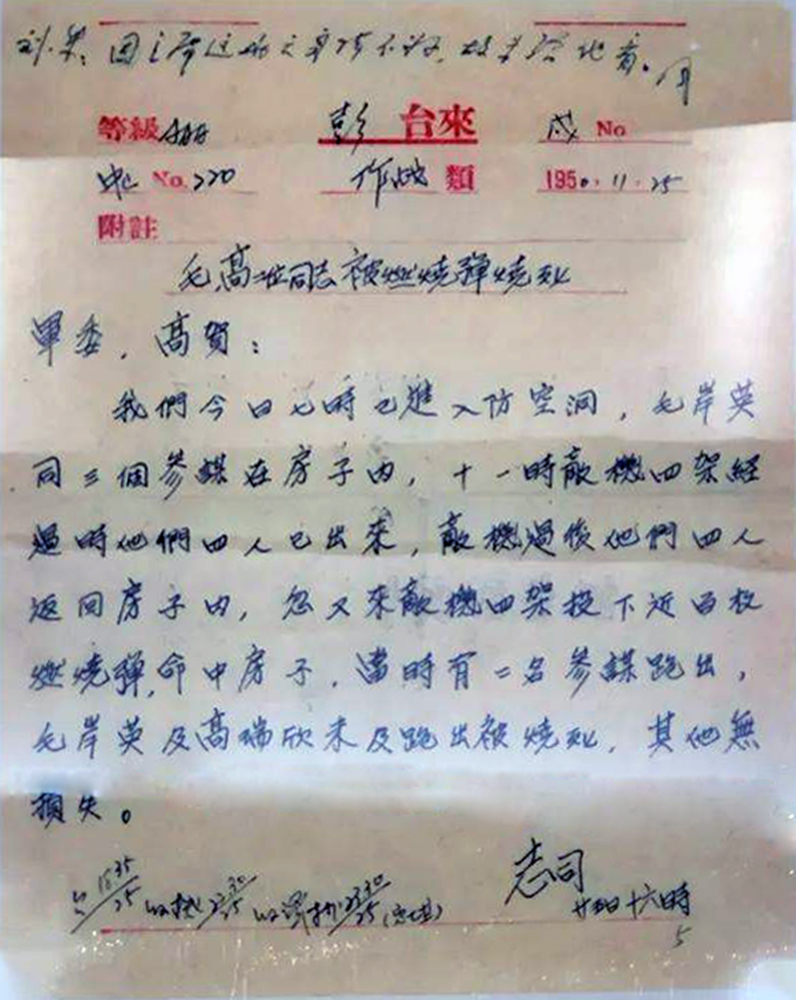 刘、朱、因主席这
等級AAAA 彭台來 戌 No
No.220 作战類 1950.11.25
附註
毛、高二位同志被燃燒彈燒死
軍委，高賀：
我們今日七時已進入防空洞，毛岸英
同三個參謀在房子内，十一時敵機四架經
過時他們四人已出來，敵機過後他們四人
返回房子内，忽又來敵機四架投下近百枚
燃燒彈，命中房子，當時有二名參謀跑出，
毛岸英及高瑞欣未及跑出被燒死，其他無
損失。
志司
廿五日十六時
5